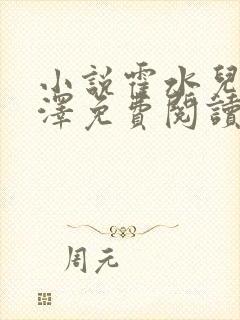 小説霍水兒
澤免費閱讀
周元